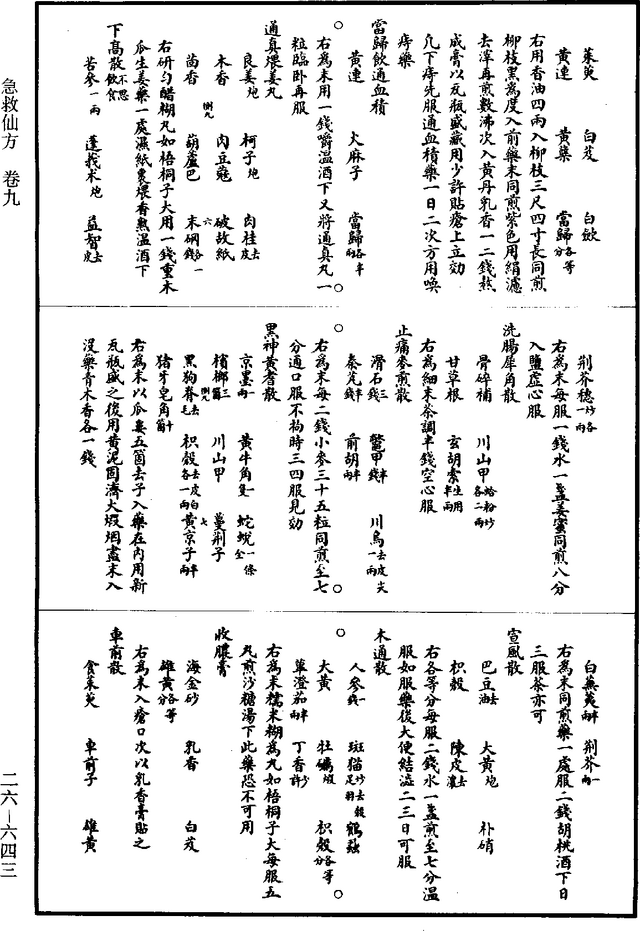 急救仙方　卷九
茱萸　白芨　白歛
黄連　黄蘗　當歸各等分
右用香油四兩入柳枝三尺四寸長同煎
柳枝黑爲度入前藥末同煎紫色用絹濾
去滓再煎數沸次入黄丹乳香一二錢熬
成膏以瓦瓶盛藏用少許貼瘡上立効
凡下痔先服通血積藥一日二次方用喚
痔藥
當歸飲通血積
黄連　大麻子　當歸各半兩
右爲末用一錢嚼温酒下又將通真丸一
粒臨卧再服
通真煨姜丸
良姜炮　柯子炮　肉桂去皮
木香　肉豆蔻　破故紙
茴香　葫蘆巴　末硇各一錢
右研匀醋糊丸如梧桐子大用一錢重木
瓜生姜藥一處濕紙裹煨香熟温酒下
下鬲散不思飲食
苦參一兩　蓬莪术炮　益智去皮
荆芥穗各一兩炒
右爲末每服一錢水一盞姜蜜同煎八分
入鹽虚心服
洗腸犀角散
骨碎補　川山甲蛤粉炒各二兩
甘草根　玄胡索生用半兩
右爲細末茶調半錢空心服
止痛麥煎散
滑石三錢　鱉甲半錢　川烏一兩去皮尖
秦艽半錢　前胡半兩
右爲末每二錢小麥三十五粒同煎至七
分通口服不拘時三四服見効
黑神黄耆散
京墨一兩　黄牛角一隻　蛇蜕一條全
檳榔三箇　川山甲　蔓荆子
黑狗脊去毛　枳殼去皮白各一兩　黄京子半兩
猪牙皂角十箇
右爲末以瓜蔞五箇去子入藥在内用新
瓦瓶盛之後用黄泥固濟火煅烟盡末入
没藥青木香各一錢
白蕪荑半兩　荆芥一兩
右爲末同煎藥一處服二錢胡桃酒下日
三服茶亦可
宣風散
巴豆去油　大黄炮　朴硝
枳殻　陳皮去瓤
右各等分每服二錢水一盞煎至七分温
服如服藥後大便結澁二三日可服
木通散
人參一錢　斑猫炒去足羽　鶴虱
大黄　牡蠣煅　枳殻各等分
蓽澄茄半兩　丁香少許
右爲末糯米糊爲丸如梧桐子大每服五
丸煎沙糖湯下此藥恐不可用
收膿膏
海金砂　乳香　白芨
雄黄各等分
右爲末入瘡口次以乳香膏貼之
車前散
食茱萸　車前子　雄黄
二六—六四三